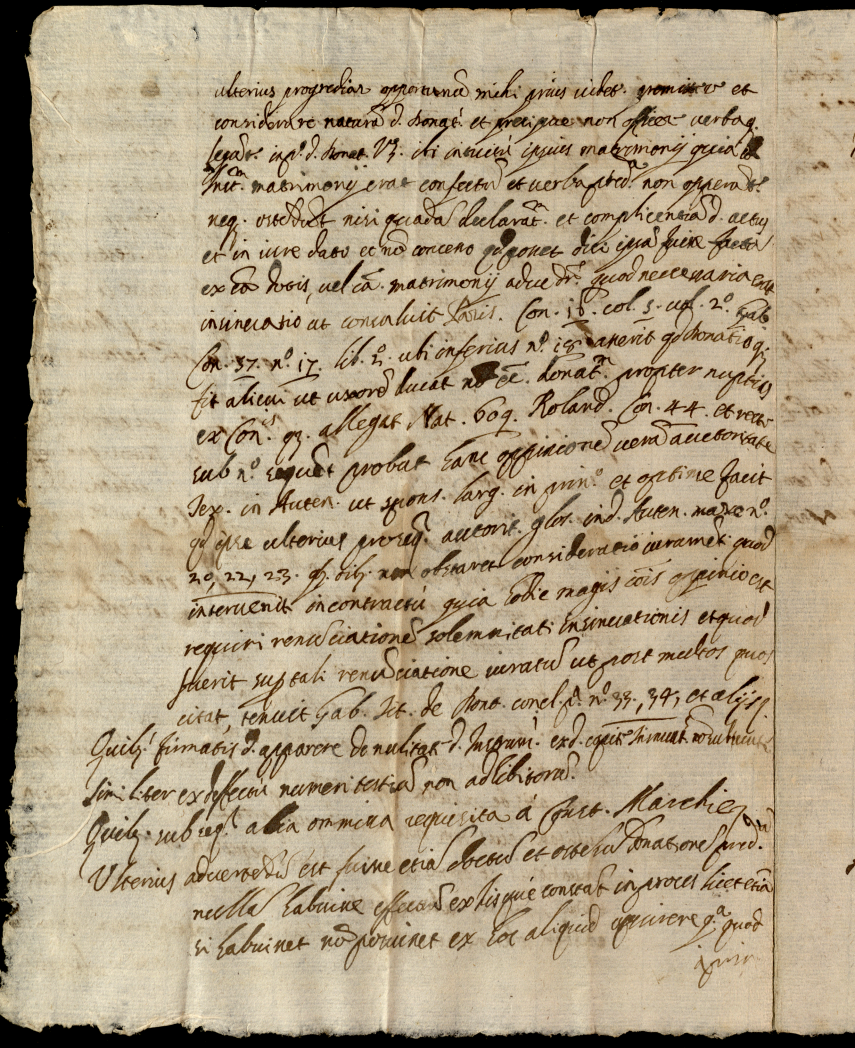 ulterius progrediar opportunu mihi prius videt. premittere et
considerare natura d. Donat. et precipue non officer verba q.
legunt. in p. d. Donat. Vz. ibi intuitu ipsius matrimonij quia
Init. matrimonij erat confectu et verba pred. non opperant.
neq. ostedut nisi quada declarat. et complicentia d. actus
et in iure dato et no concesso qd posset dici ipsa fuisse facta
ex ca dotis, vel ca. matrimonij adue dr. quod necessaria erat
insinuatio ut consuluit Paris. Con. 16. col. 5. vol. 2.° Gab
Con. 37. n.° 17. lib. 2. ubi inferius n.° 18. asserit qd Donatio q;
fit alicui ut uxore ducat no e. donat. propter nuptias
ex Con. 93. allegat Nat. 609. Roland. Con. 44. et recte
sub n.° sequet probat hanc oppinione vera auctoritate
Tex. in Auten. ut spons. larg. in prin.° et optime facit
qd ipse ulterius proseq. autorit. glos. in d. Auten. maxe n.°
20, 22, 23. non obstaret consideratio iuramet. quod
intervenit in contractu quia hodie magis cois oppinio est
requiri renuciatione solemnitati insinuationis et quod
fuerit sup tali renuciatione iuratu ut post multos quos
citat, tenuit Gab. tit. de Dont. concl. p. n.° 33, 34, et alijs
Quib. firmatis apparere de nulitat. d. Instrum. ex d.
Similiter ex deffectu numeri testiu non adhibitoru.
Quib. subseq. alia ommissa requisita à Const. Marchie
Ulterius advertedu est fuisse etia doctu et ostesu Donatione pred.
nulla habuisse effectu ex his que constat in proces. licet etia
si habuisset no potuisset ex hoc aliquid acquirere q.a quod